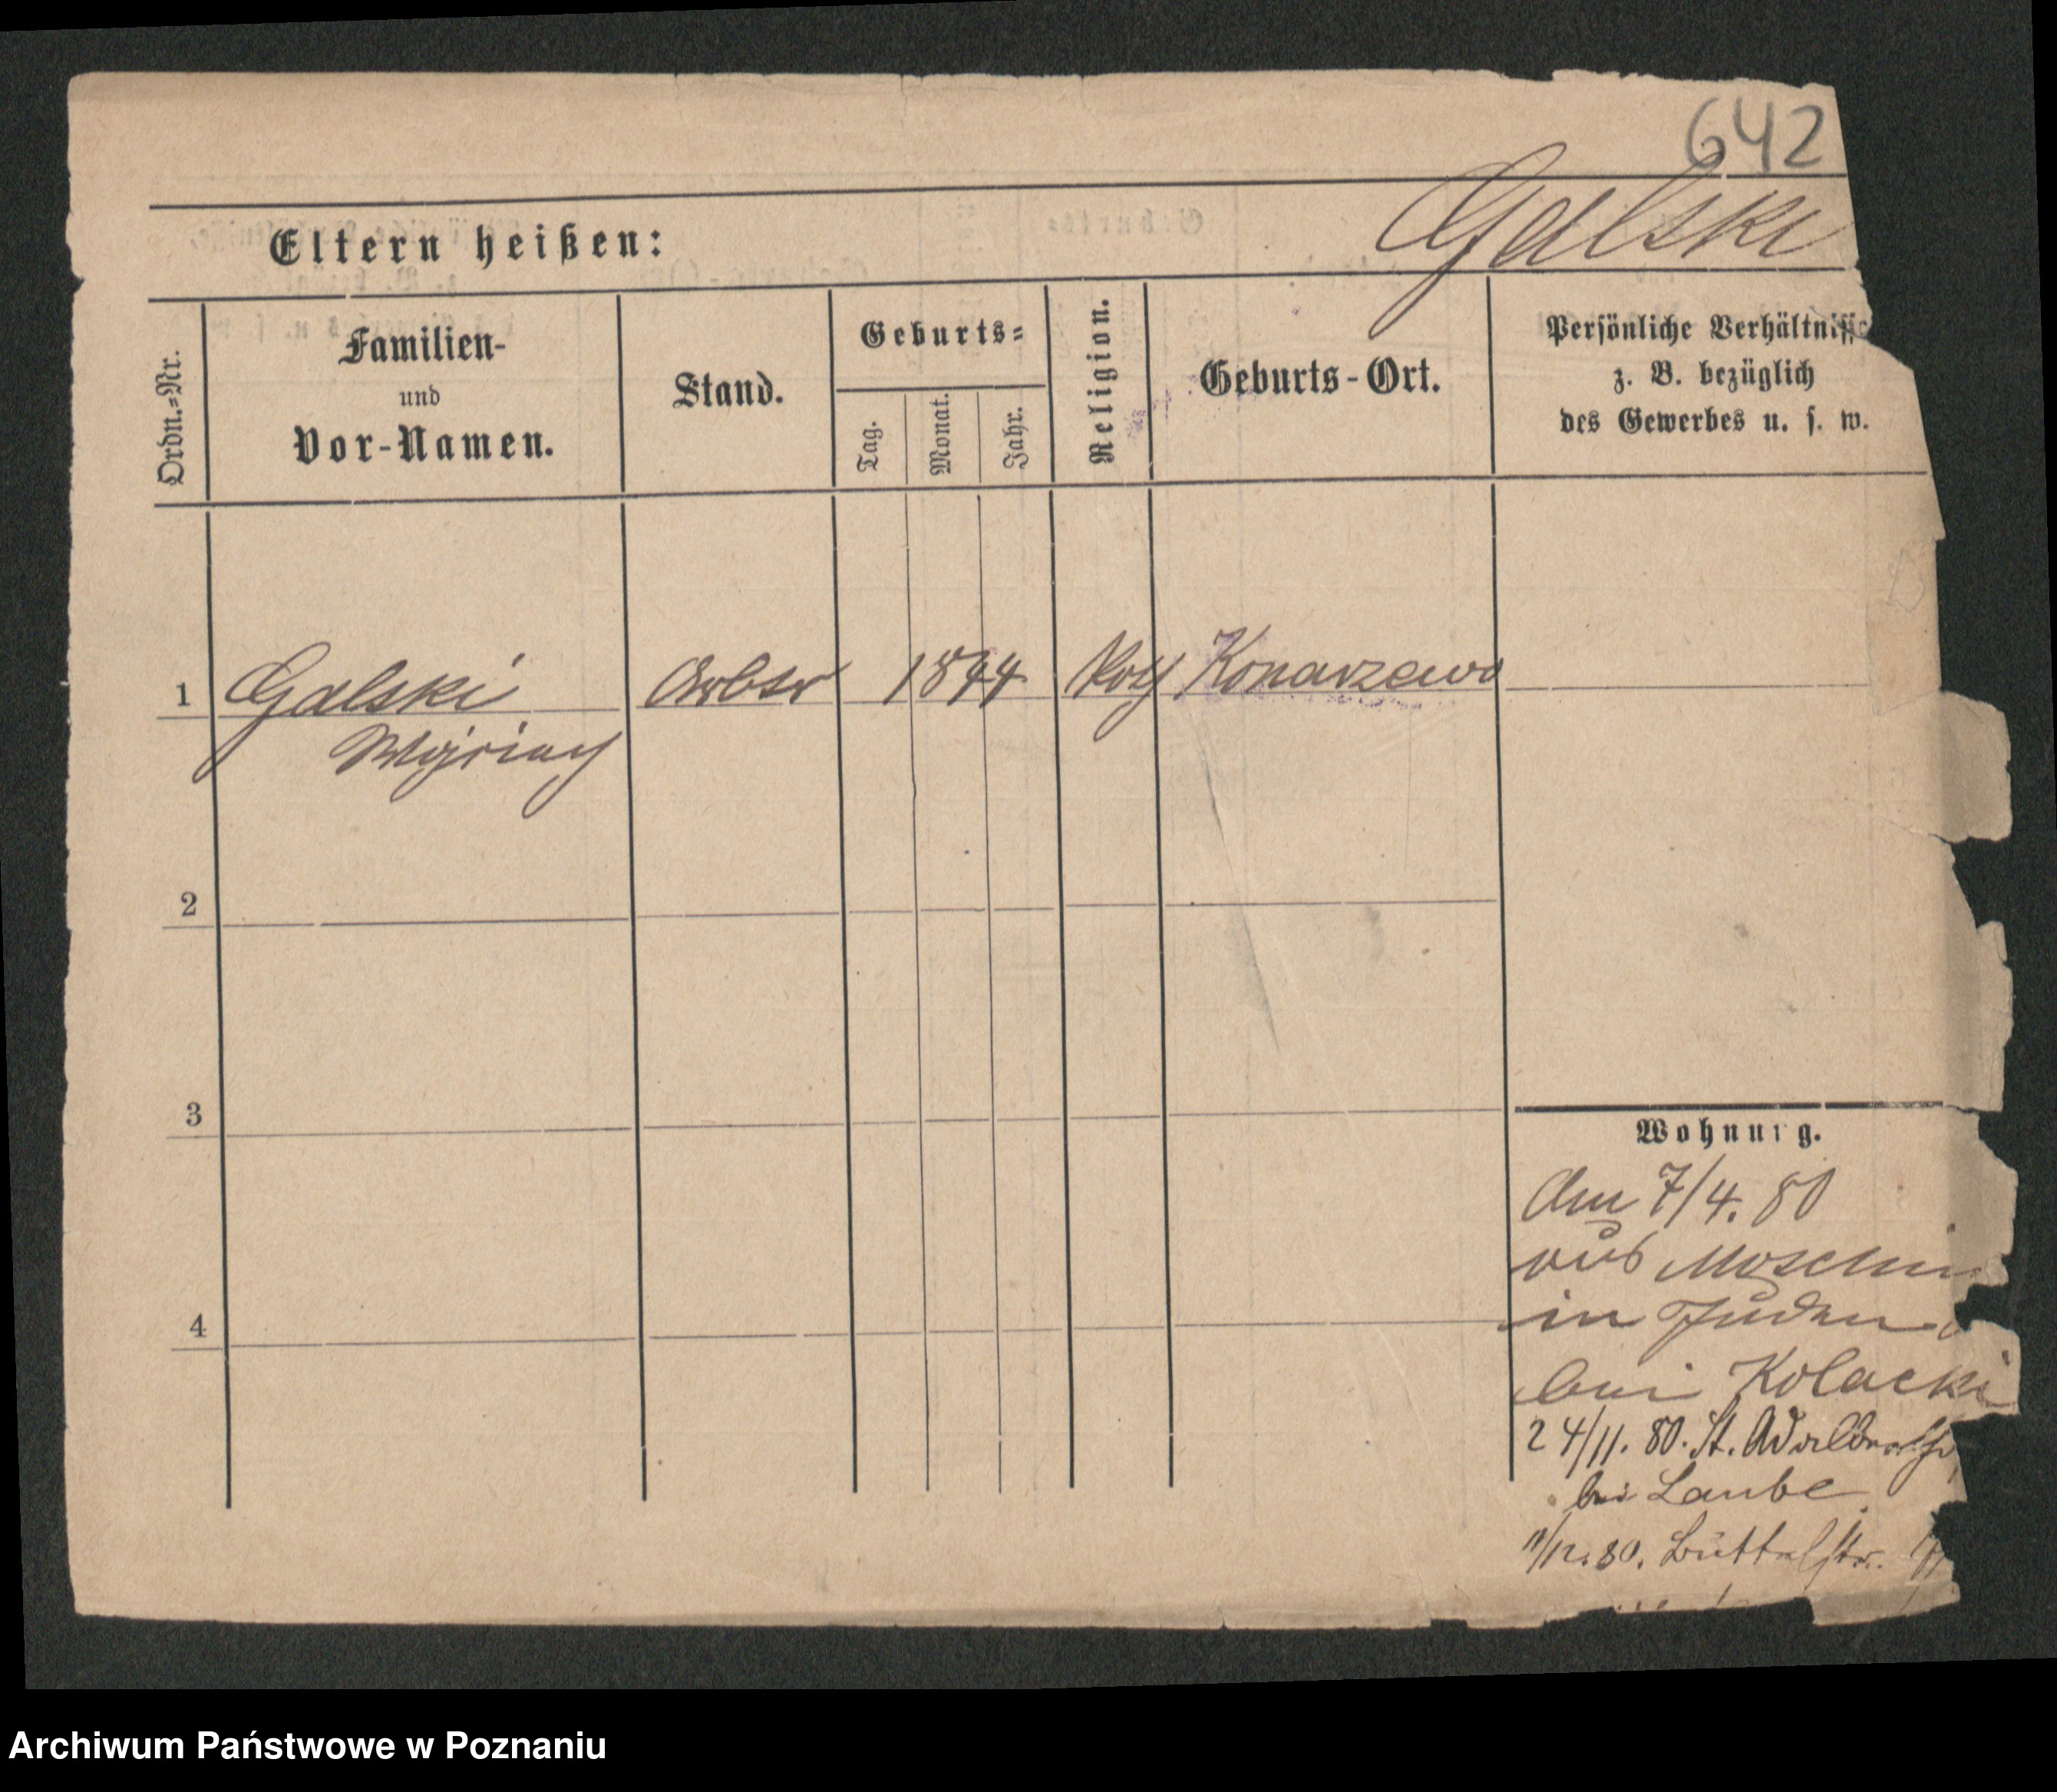 642
Galski
Eltern heißen:
Ordn.=Nr.
Familien-
und
Vor-Namen.
Stand.
Geburts=
Tag.
Monat.
Jahr.
Religion.
Geburts-Ort.
Persönliche Verhältnisse
z. B. bezüglich
des Gewerbes u. s. w.
1 Galski Arbtr 1844 Kath Konarzewo
2
3
4
Wohnung.
Am 7/4. 80
aus Moschin
in Juden
bei Kolacki
24/11. 80. St. Adalbertstr
bei Laube
11/12. 80. Büttelstr.
Archiwum Państwowe w Poznaniu